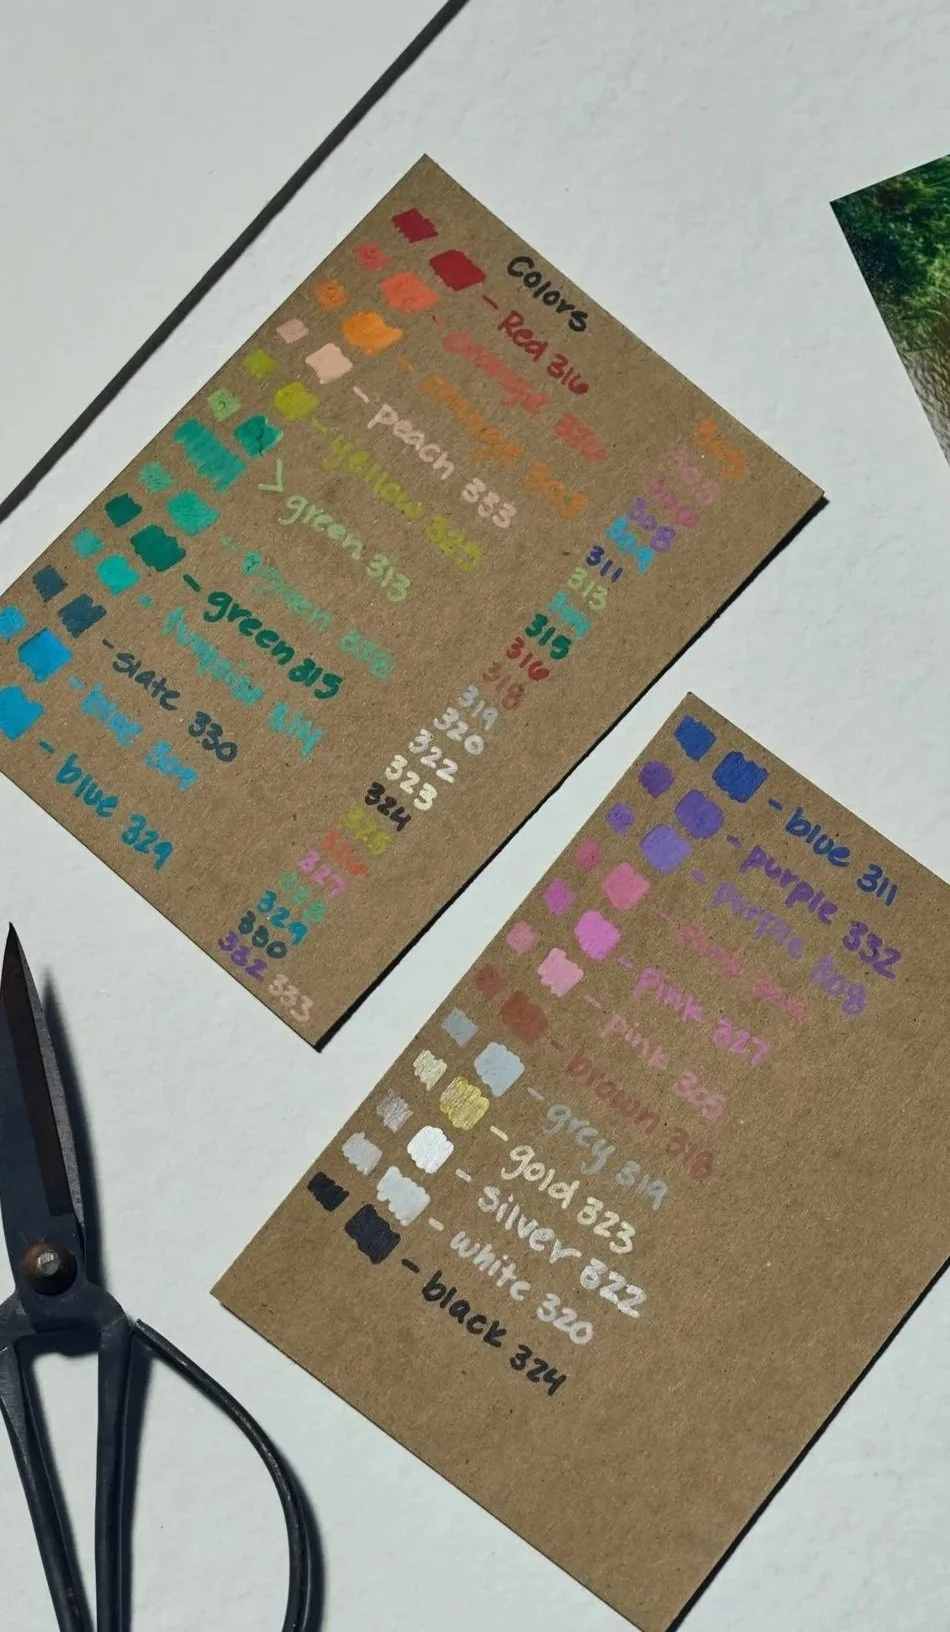 Colors
- Red 316
- orange 326
- orange 303
- peach 333
- yellow 325
> green 313
- green 328
- green 315
- turquoise 314
- slate 330
- blue 309
- blue 329
303
305
306
308
309
311
313
314
315
316
318
319
320
322
323
324
325
326
327
328
329
330
332 333
- blue 311
- purple 332
- purple 308
- pink 306
- pink 327
- pink 305
- brown 318
- grey 319
- gold 323
- silver 322
- white 320
- black 324